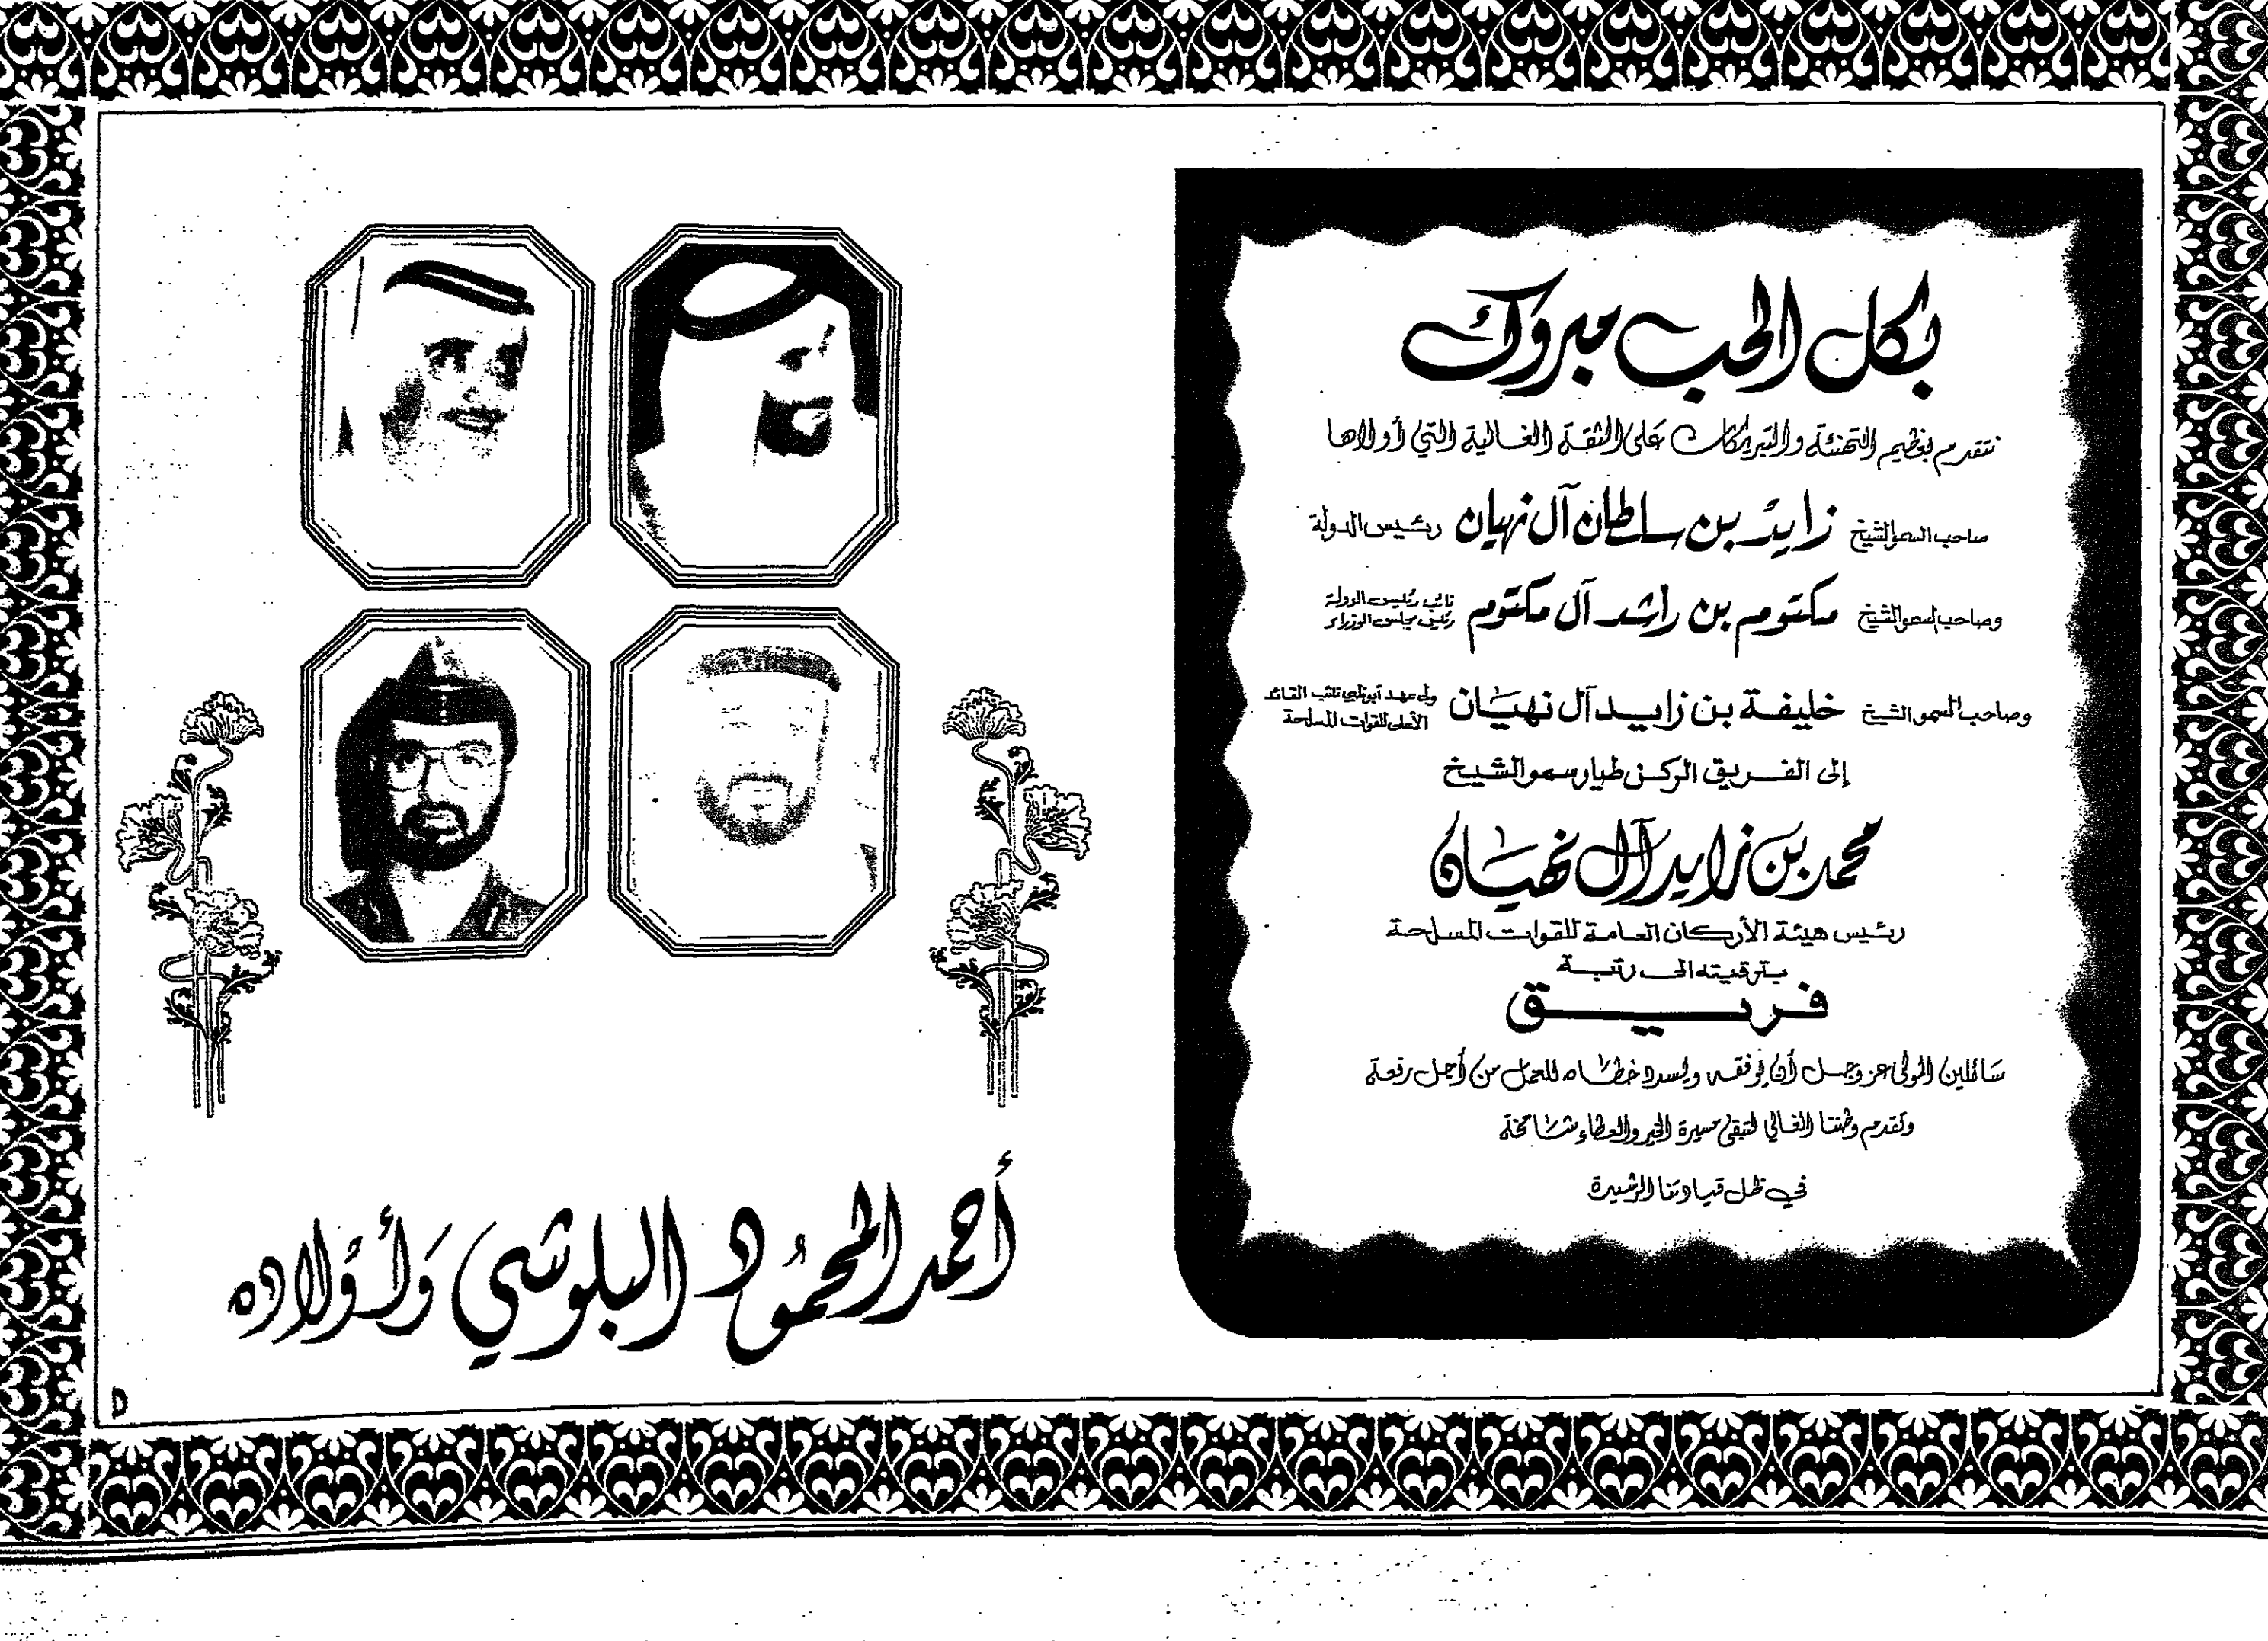 بكل الحب مبروك
نتقدم بعظيم التهنئة والتبريكات على الثقة الغالية التي أولاها
صاحب السمو الشيخ زايد بن سلطان آل نهيان رئيس الدولة
وصاحب السمو الشيخ مكتوم بن راشد آل مكتوم نائب رئيس الدولة
رئيس مجلس الوزراء
وصاحب السمو الشيخ خليفة بن زايد آل نهيان ولي عهد أبوظبي نائب القائد
الأعلى للقوات المسلحة
إلى الفريق الركن طيار سمو الشيخ
محمد بن زايد آل نهيان
رئيس هيئة الأركان العامة للقوات المسلحة
بترقيته الى رتبة
فريق
سائلين المولى عز وجل أن يوفقه ويسدد خطاه للعمل من أجل رفعة
وتقدم وطننا الغالي لتبقى مسيرة الخير والعطاء شامخة
في ظل قيادتنا الرشيدة
أحمد المحمود البلوشي وأولاده
D